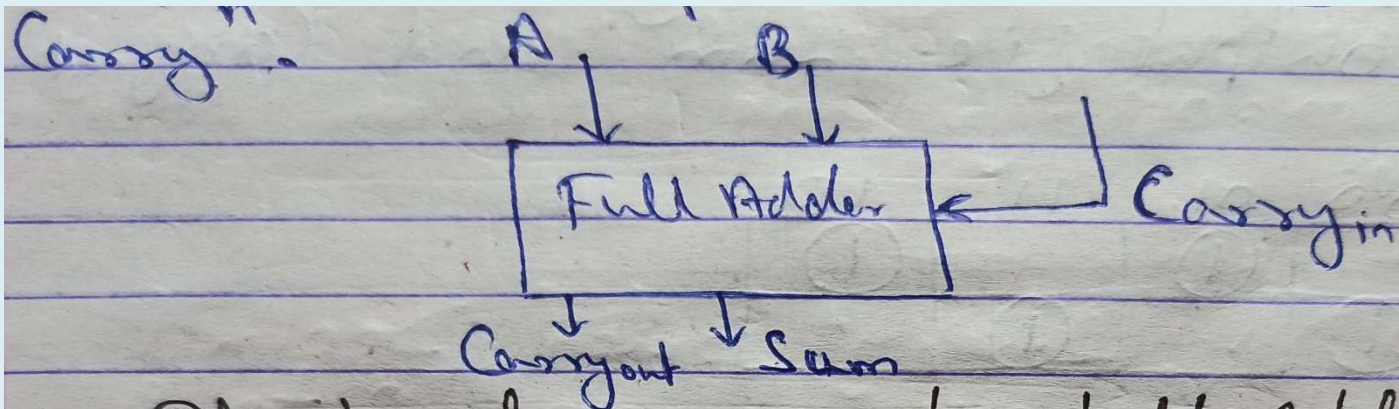 Carry".
A B
Full Adder
Carry in
Carry out Sum